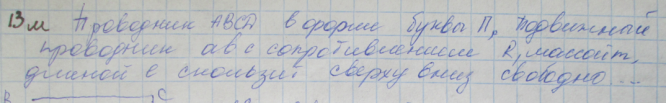 13м Проводник ABCD в форме буквы П, Подвижный
проводник ab с сопротивлением R, массой m,
длиной l скользит сверху вниз свободно ...
B C